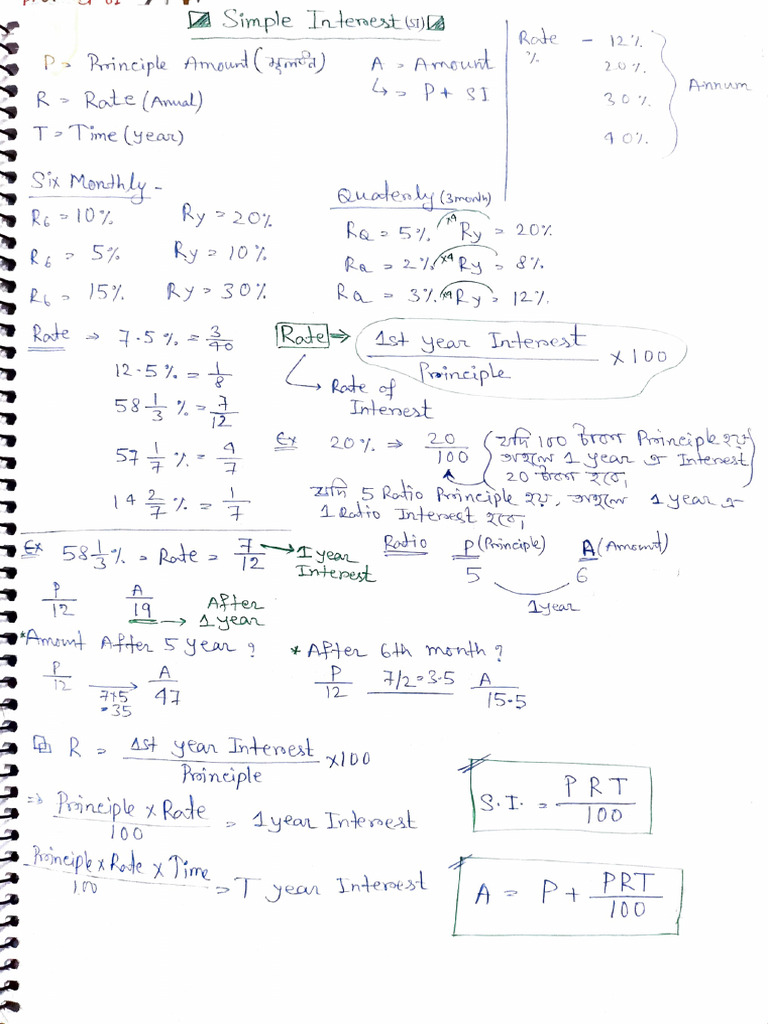 Simple Interest (SI)
P = Principle Amount (মূলধন)
R = Rate (Annual)
T = Time (year)
A = Amount
↳ = P + SI
Rate - 12%
% 20%
30%
40%
Annum
Six Monthly -
R6 = 10% Ry = 20%
R6 = 5% Ry = 10%
R6 = 15% Ry = 30%
Quaterly (3 month)
RQ = 5% ×4 Ry = 20%
RQ = 2% ×4 Ry = 8%
RQ = 3% ×4 Ry = 12%
Rate ⇒ 7.5% = 3/40
12.5% = 1/8
58 1/3 % = 7/12
57 1/7 % = 4/7
14 2/7 % = 1/7
Rate ⇒ 1st year Interest / Principle × 100
↳ Rate of
Interest
Ex 20% ⇒ 20/100 (যদি 100 টাকা Principle হয়
তাহলে 1 year এ Interest
20 টাকা হবে।
যদি 5 Ratio Principle হয়, তাহলে 1 year এ
1 Ratio Interest হবে।
Ex 58 1/3 % = Rate = 7/12 → 1 year
Interest
P/12 A/19 → After
1 year
Ratio P (Principle) A (Amount)
5 6
1 year
*Amount After 5 year?
P/12 → 7×5 = 35 A/47
* After 6th month?
P/12 7/2 = 3.5 A/15.5
R = 1st year Interest / Principle ×100
⇒ Principle × Rate / 100 = 1 year Interest
Principle × Rate × Time / 100 = T year Interest
S.I. = PRT / 100
A = P + PRT / 100